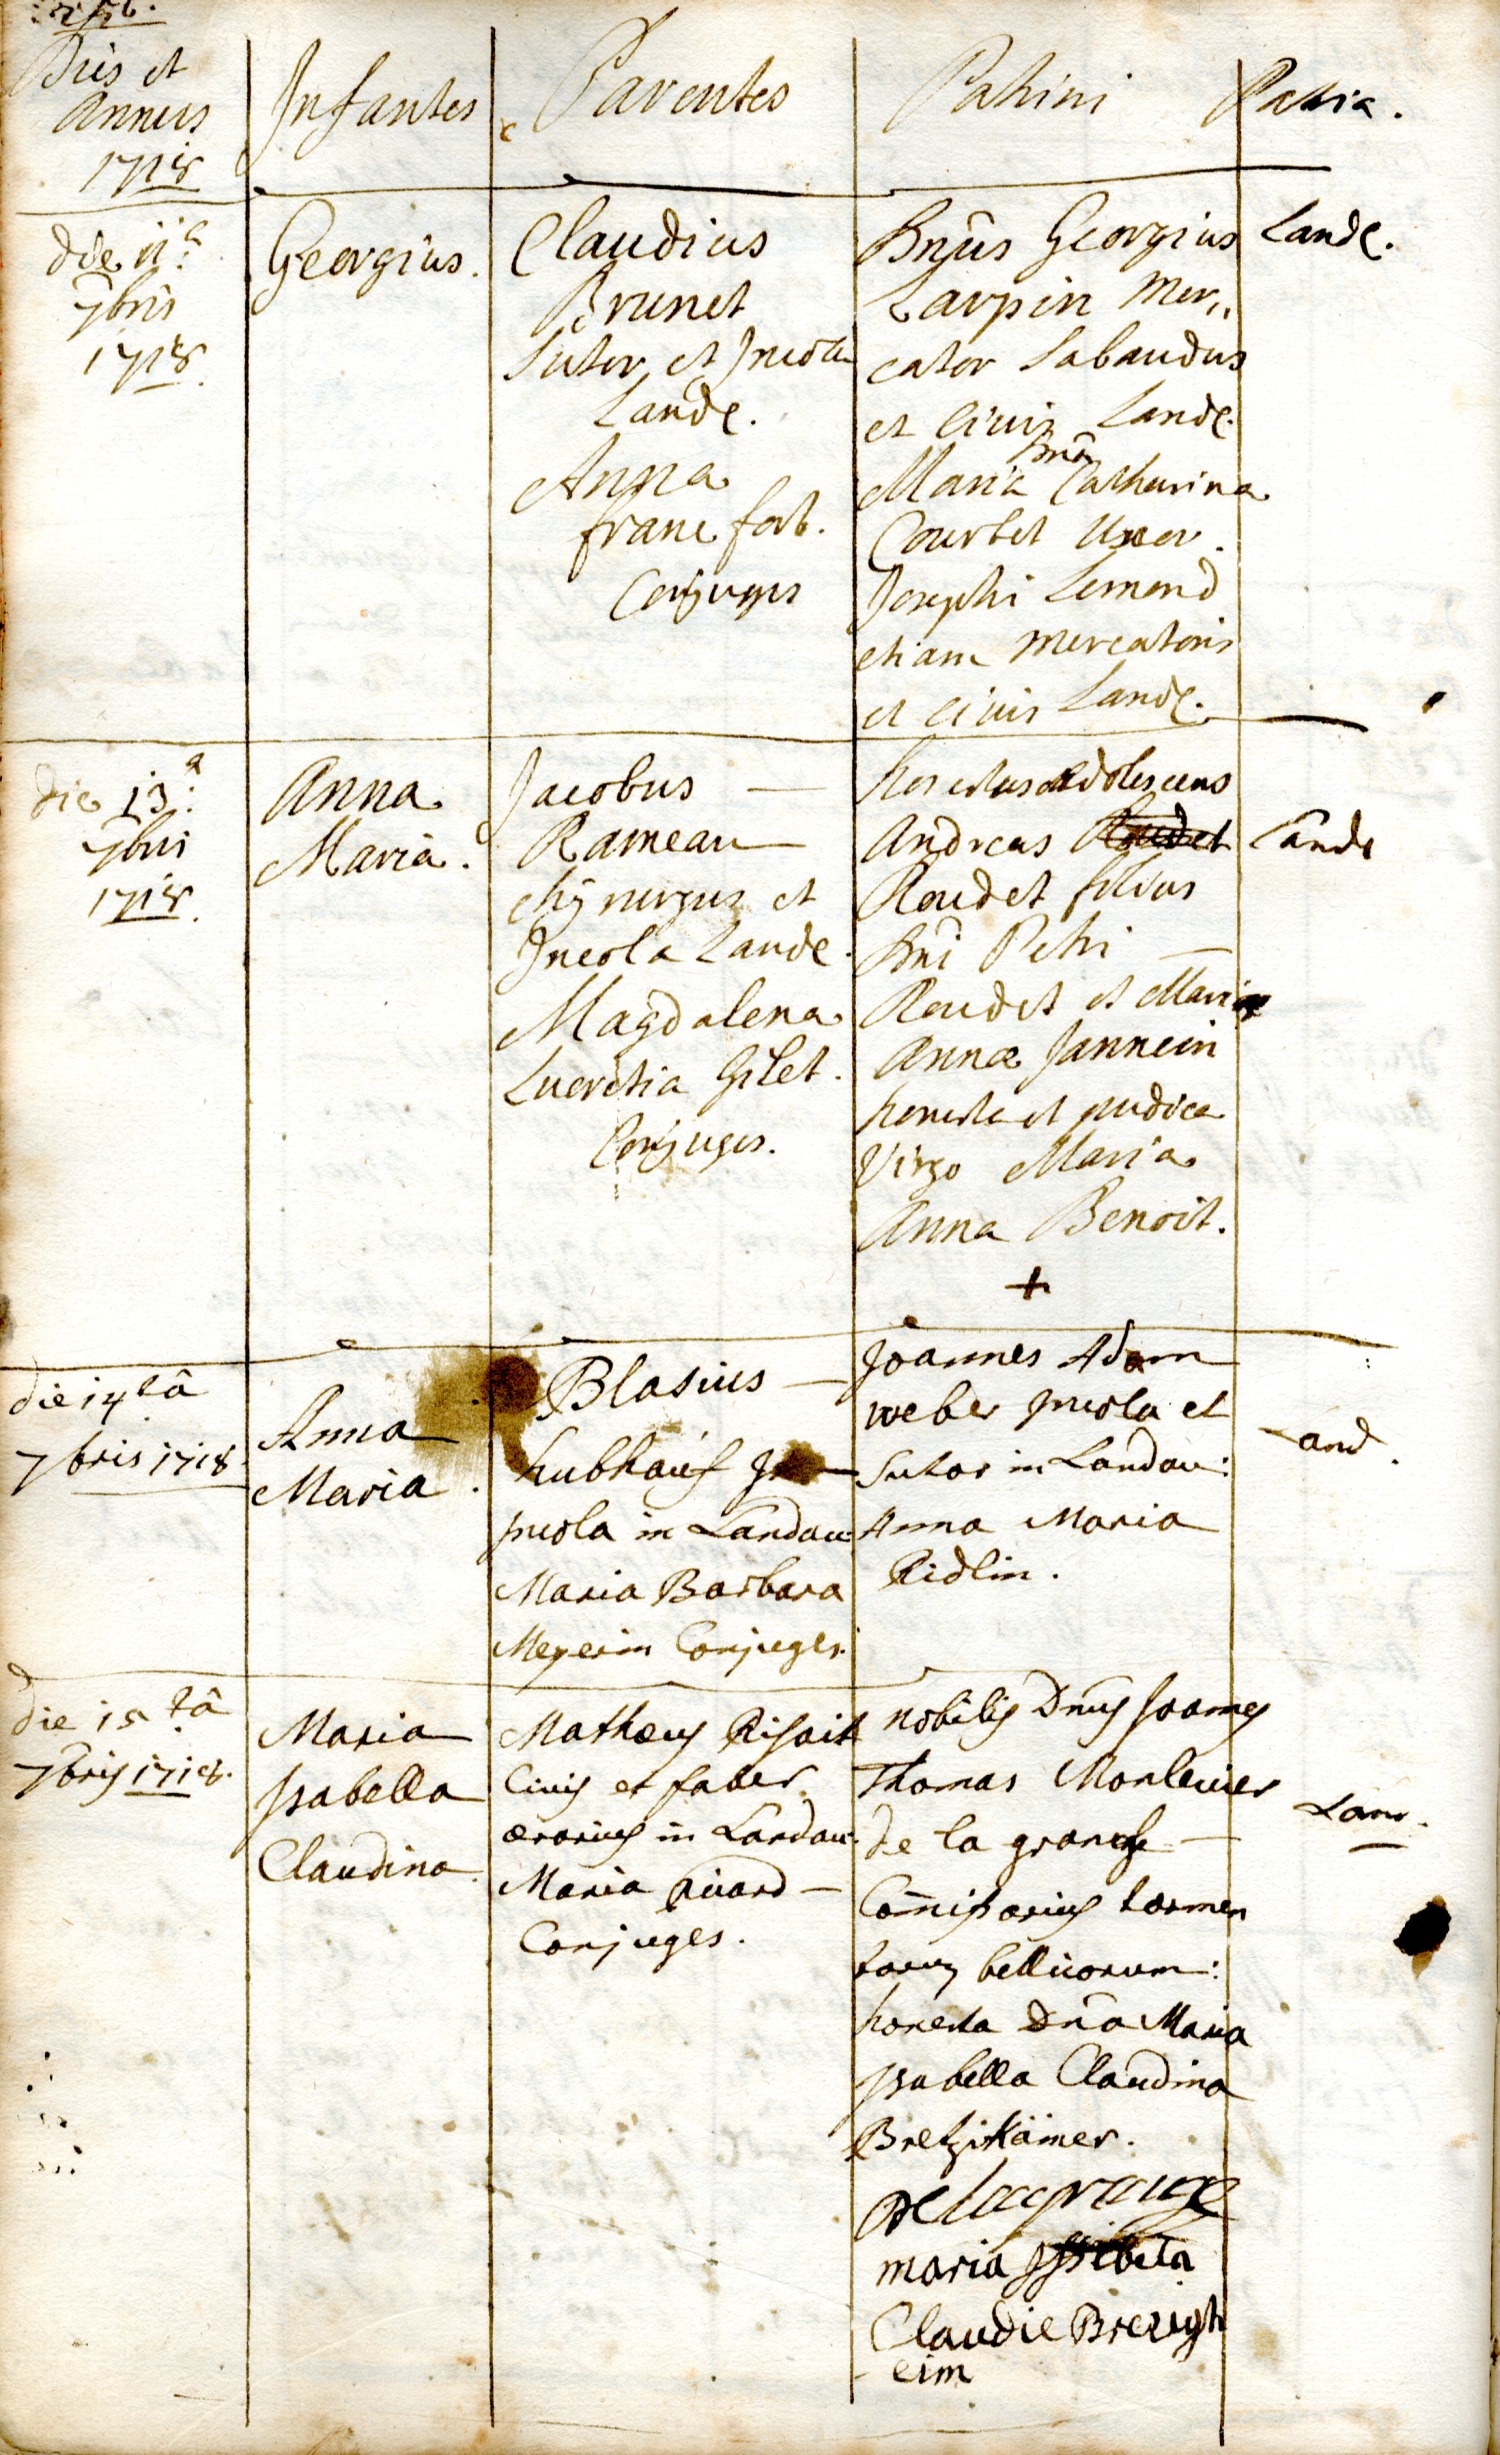 Dies et
Annus
1718
Infantes
Parentes
Patrini
Patria.
die 11a
7bris
1718.
Georgius.
Claudius
Brunet
Sutor et Incola
Landę.
Anna
francfort.
Conjuges
Dnūs Georgius
Larpin Mer„
cator Sabaudus
et Civis Landę.
Dnā
Maria Catharina
Courtet Uxor.
Josephi Lemond
etiam Mercatoris
et civis Landę.
Landę.
die 13a
7bris
1718.
Anna
Maria.
Jacobus —
Rameau —
chyrurgus et
Incola Landę.
Magdalena
Lucretia Gilet.
Conjuges.
honestus adolescens
Andreas Roudet
Roudet filius
Dnī Petri —
Roudet et Mariæ
Annæ Jannein
honesta et pudica
Virgo Maria
Anna Benoit.
+
Landę
die 14tâ
7bris 1718.
Anna
Maria.
Blasius —
hubhauf
incola in Landau
Maria Barbara
Meyerin Conjuges.
Joannes Adam
weber incola et
Sutor in Landau:
Anna Maria
Ridlin.
Land.
die 15tâ
7bris 1718.
Maria
Isabella
Claudina.
Mathæus Risait
Civis et faber
ærarius in Landau.
Maria Rivard —
Conjuges.
nobilis Dnus Joannes
Thomas Monlevier
de la granche —
Com̄issarius tormen
torum bellicorum:
honesta Dnā Maria
Isabella Claudina
Bretzikāmer.
Delagrange
maria Issebela
Claudie Brezigh
eim
Land.